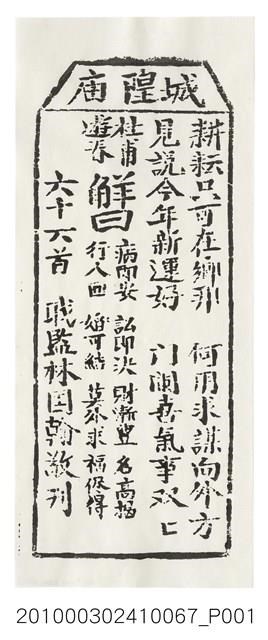 城隍庙
耕耘只可在鄉邦 何用求謀向外方
見說今年新運好 門闌喜氣事双匕
杜甫
遊春
解曰
病即安 訟即決 財漸豐 名高
行人回 婚可結 莫外求 福保得
六十六首 職監林国翰敬刊
201000302410067_P001